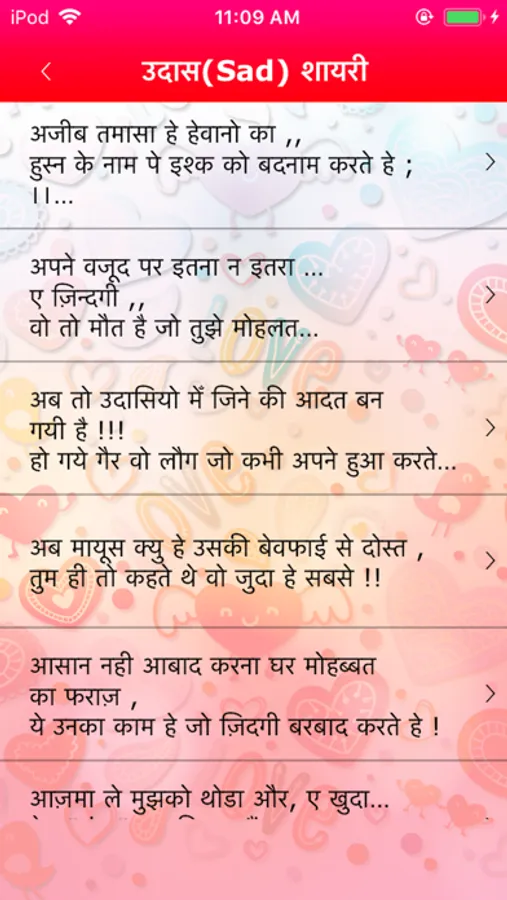 iPod 11:09 AM
उदास(Sad) शायरी
अजीब तमासा हे हेवानो का ,,
हुस्न के नाम पे इश्क को बदनाम करते हे ;
।।...
अपने वजूद पर इतना न इतरा ...
ए ज़िन्दगी ,,
वो तो मौत है जो तुझे मोहलत...
अब तो उदासियो मेँ जिने की आदत बन
गयी है !!!
हो गये गैर वो लौग जो कभी अपने हुआ करते...
अब मायूस क्यु हे उसकी बेवफाई से दोस्त ,
तुम ही तो कहते थे वो जुदा हे सबसे !!
आसान नही आबाद करना घर मोहब्बत
का फराज़ ,
ये उनका काम हे जो ज़िदगी बरबाद करते हे !
आज़मा ले मुझको थोडा और, ए खुदा...
love
love
love